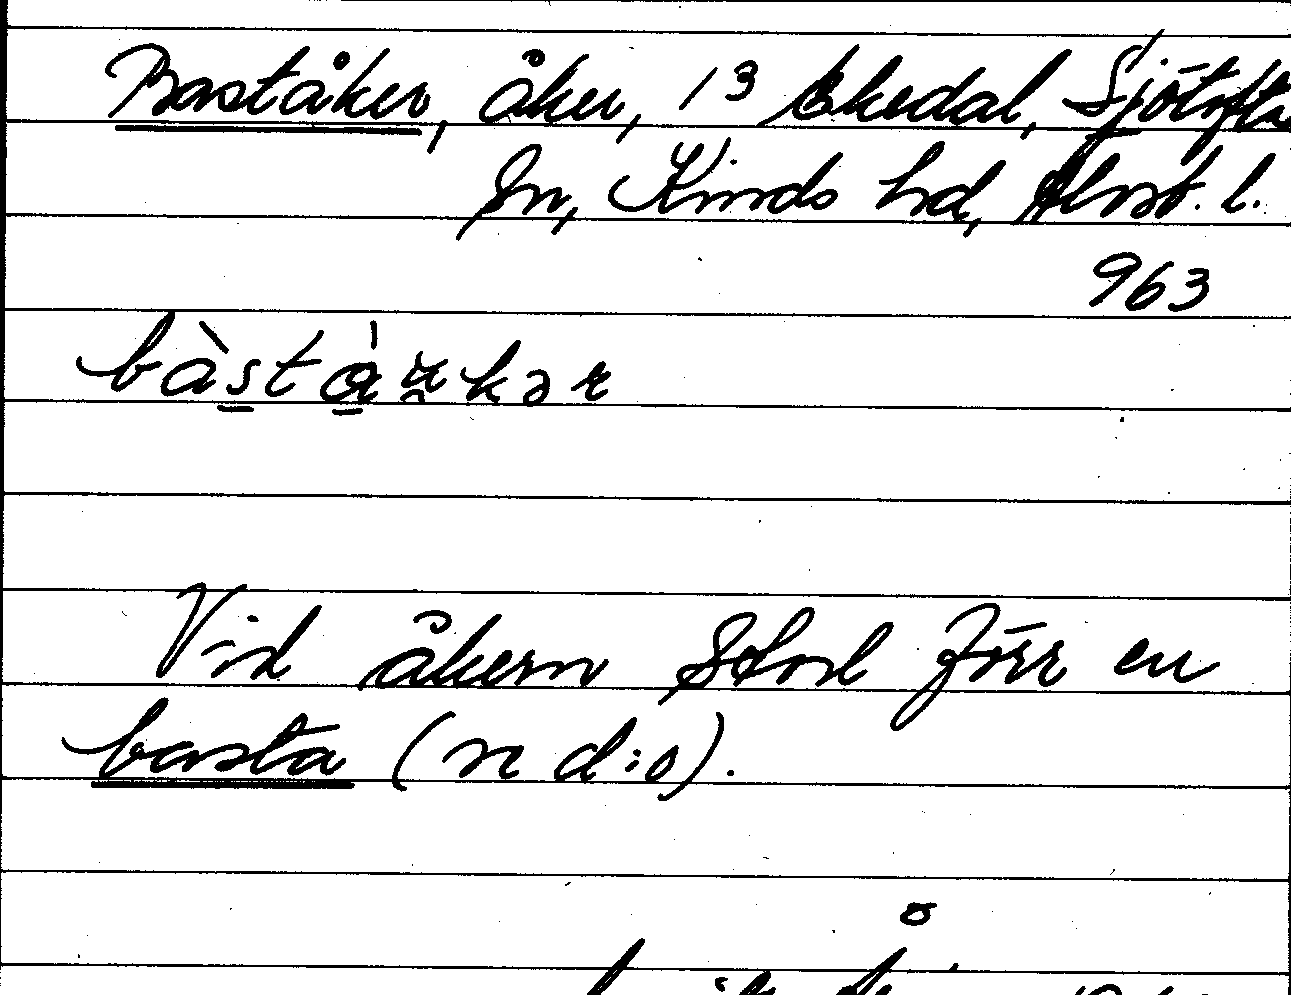 Baståker, åker, 13 Ekedal, Sjötofta
sn, Kinds hd, Älvsb. l.
963
Vid åkern stod förr en
basta (n d:o).